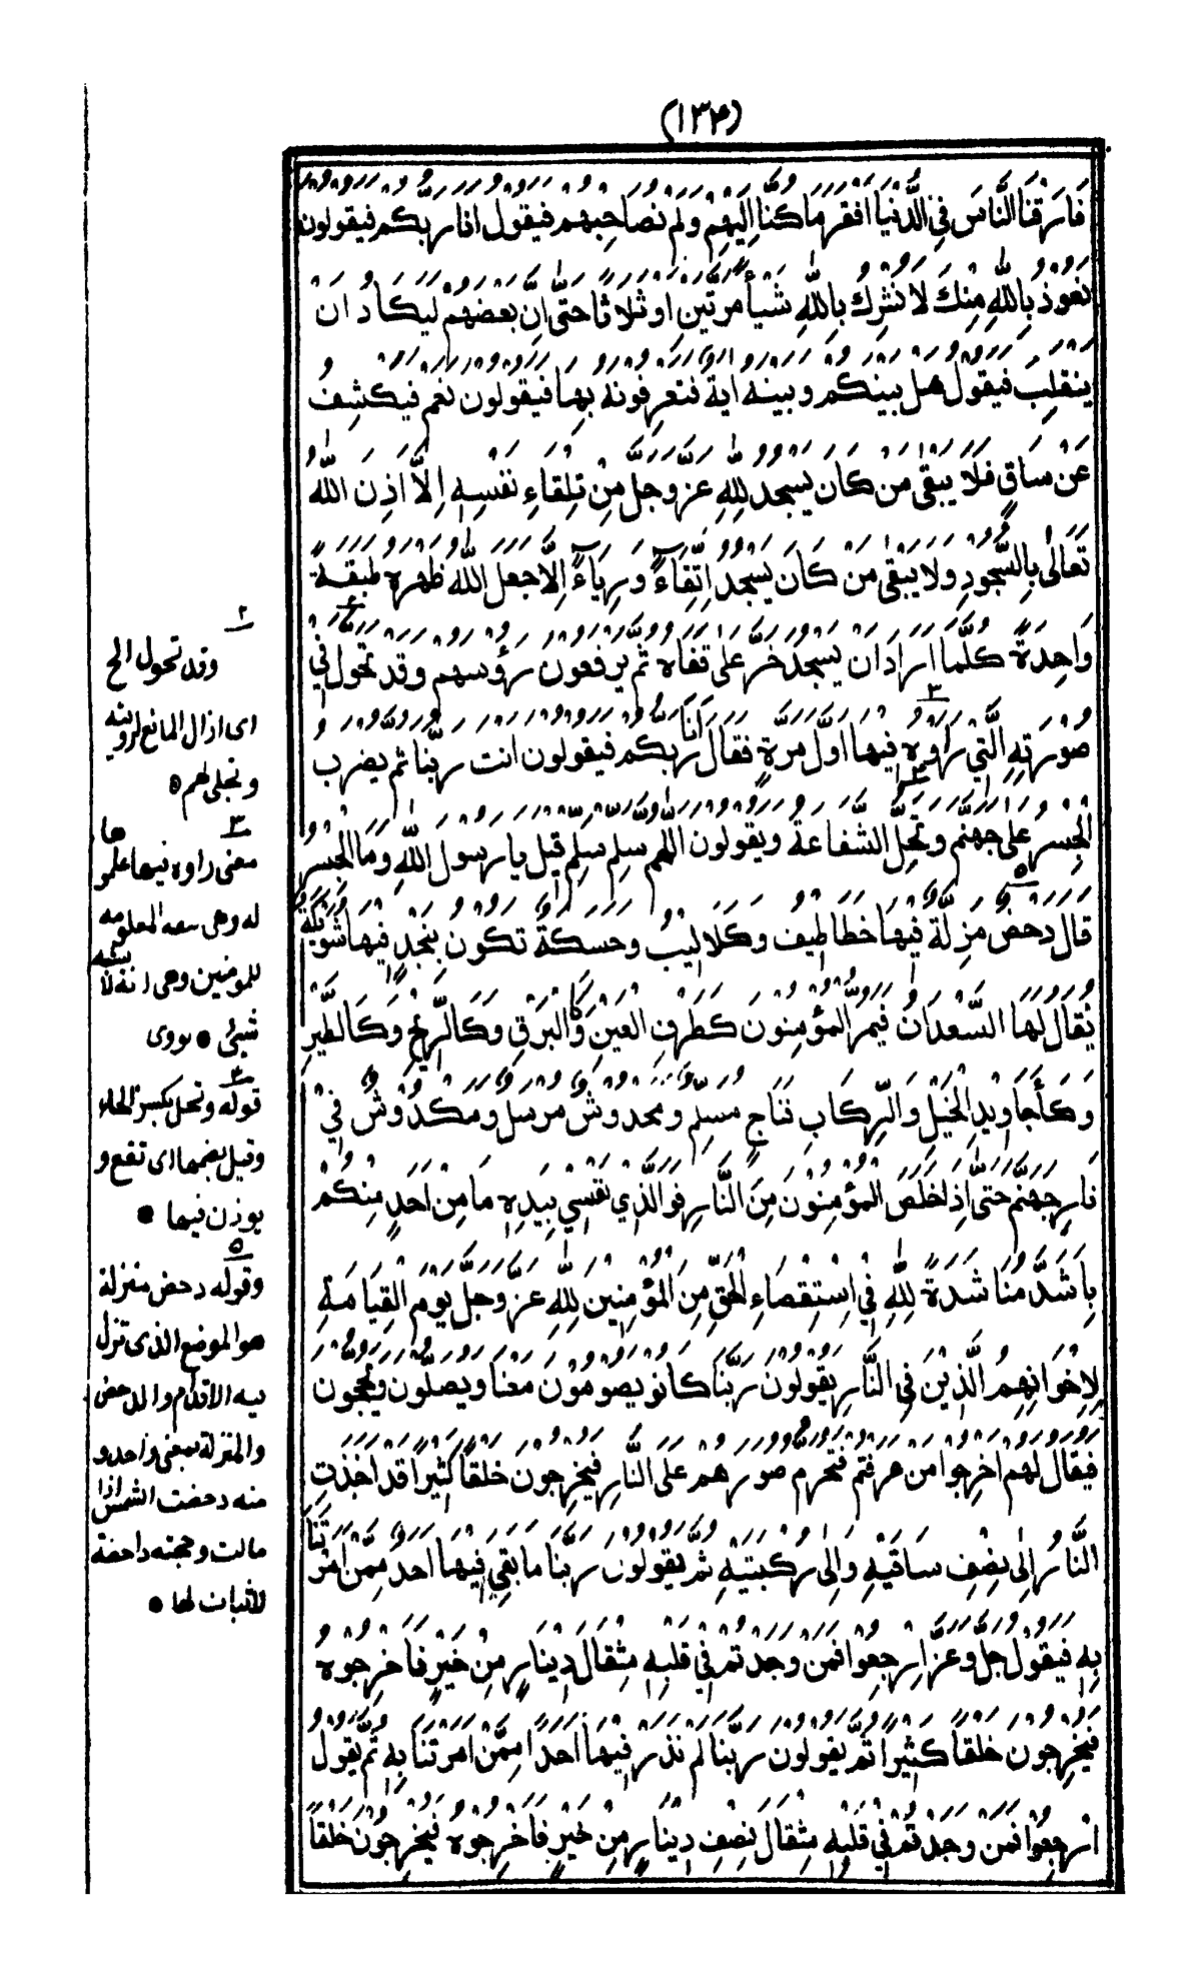 (١٣٤)
فَارَقْنَا النَّاسَ فِي الدُّنْيَا أَفْقَرَ مَا كُنَّا إِلَيْهِمْ وَلَمْ نُصَاحِبْهُمْ فَيَقُولُ أَنَا رَبُّكُمْ فَيَقُولُونَ
نَعُوذُ بِاللّٰهِ مِنْكَ لَا نُشْرِكُ بِاللّٰهِ شَيْأً مَرَّتَيْنِ أَوْ ثَلَاثًا حَتَّى إِنَّ بَعْضَهُمْ لَيَكَادُ أَنْ
يَنْقَلِبَ فَيَقُولُ هَلْ بَيْنَكُمْ وَبَيْنَهُ آيَةٌ فَتَعْرِفُونَهُ بِهَا فَيَقُولُونَ نَعَمْ فَيُكْشَفُ
عَنْ سَاقٍ فَلَا يَبْقَى مَنْ كَانَ يَسْجُدُ لِلّٰهِ عَزَّ وَجَلَّ مِنْ تِلْقَاءِ نَفْسِهِ إِلَّا أَذِنَ اللّٰهُ
تَعَالَى بِالسُّجُودِ وَلَا يَبْقَى مَنْ كَانَ يَسْجُدُ اتِّقَاءً وَرِيَاءً إِلَّا جَعَلَ اللّٰهُ ظَهْرَهُ طَبَقَةً
وَاحِدَةً كُلَّمَا أَرَادَ أَنْ يَسْجُدَ خَرَّ عَلَى قَفَاهُ ثُمَّ يَرْفَعُونَ رُؤُسَهُمْ وَقَدْ تَحَوَّلَ فِي
صُورَتِهِ الَّتِي رَأَوْهُ فِيهَا أَوَّلَ مَرَّةٍ فَقَالَ أَنَا رَبُّكُمْ فَيَقُولُونَ أَنْتَ رَبُّنَا ثُمَّ يُضْرَبُ
الْجِسْرُ عَلَى جَهَنَّمَ وَتَحِلُّ الشَّفَاعَةُ وَيَقُولُونَ اللّٰهُمَّ سَلِّمْ سَلِّمْ قِيلَ يَا رَسُولَ اللّٰهِ وَمَا الْجِسْرُ
قَالَ دَحْضٌ مَزِلَّةٌ فِيهَا خَطَاطِيفُ وَكَلَالِيبُ وَحَسَكَةٌ تَكُونُ بِنَجْدٍ فِيهَا شُوَيْكَةٌ
يُقَالُ لَهَا السَّعْدَانُ فَيَمُرُّ الْمُؤْمِنُونَ كَطَرْفِ الْعَيْنِ وَكَالْبَرْقِ وَكَالرِّيحِ وَكَالطَّيْرِ
وَكَأَجَاوِيدِ الْخَيْلِ وَالرِّكَابِ فَنَاجٍ مُسَلَّمٌ وَمَخْدُوشٌ مُرْسَلٌ وَمَكْدُوشٌ فِيْ
نَارِ جَهَنَّمَ حَتَّى إِذَا خَلَصَ الْمُؤْمِنُونَ مِنَ النَّارِ فَوَ الَّذِي نَفْسِي بِيَدِهِ مَا مِنْ أَحَدٍ مِنْكُمْ
بِأَشَدَّ مُنَاشَدَةً لِلّٰهِ فِي اسْتِقْصَاءِ الْحَقِّ مِنَ الْمُؤْمِنِينَ لِلّٰهِ عَزَّ وَجَلَّ يَوْمَ الْقِيَامَةِ
لِإِخْوَانِهِمُ الَّذِيْنَ فِي النَّارِ يَقُولُونَ رَبَّنَا كَانُوْ يَصُومُونَ مَعَنَا وَيُصَلُّونَ وَيَحُجُّونَ
فَيُقَالُ لَهُمْ أَخْرِجُوا مَنْ عَرَفْتُمْ فَتُحَرَّمُ صُوَرُهُمْ عَلَى النَّارِ فَيُخْرِجُونَ خَلْقًا كَثِيرًا قَدْ أَخَذَتِ
النَّارُ إِلَى نِصْفِ سَاقَيْهِ وَإِلَى رُكْبَتَيْهِ ثُمَّ يَقُولُونَ رَبَّنَا مَا بَقِيَ فِيْهَا أَحَدٌ مِمَّنْ أَمَرْتَنَا
بِهِ فَيَقُولُ جَلَّ وَعَزَّ ارْجِعُوا فَمَنْ وَجَدْتُمْ فِي قَلْبِهِ مِثْقَالَ دِيْنَارٍ مِنْ خَيْرٍ فَأَخْرِجُوهُ
فَيُخْرِجُونَ خَلْقًا كَثِيرًا ثُمَّ يَقُولُونَ رَبَّنَا لَمْ نَذَرْ فِيْهَا أَحَدًا مِمَّنْ أَمَرْتَنَا بِهِ ثُمَّ يَقُولُ
ارْجِعُوا فَمَنْ وَجَدْتُمْ فِي قَلْبِهِ مِثْقَالَ نِصْفِ دِيْنَارٍ مِنْ خَيْرٍ فَأَخْرِجُوهُ فَيُخْرِجُونَ خَلْقًا
٢
وقد تحول الخ
اى ازال المانع لرويته
وتجلى لهم ٥
٣
معنى راوه فيها علموها
له وهى صفة المعلومه
للمومنين وهى انه لا يشبهه
شئ ● نووى
٤
قوله وتحل بكسر الحاء
وقيل بضمها اى تقع و
يوذن فيها ●
٥
وقوله دحض منزلة
هو الموضع الذى تزل
فيه الاقدام والدحض
والمزلة بمعنى واحد و
منه دحضت الشمس اذا
مالت وحجته داحضة
لاثبات لها ●